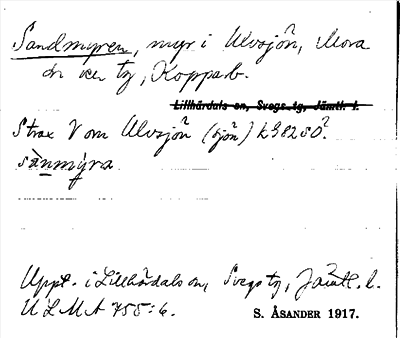 Sandmyren, myr i Ulvsjön, Mora
sn och tg, Kopparb.
Lillhärdals sn, Svegs tg, Jämtl. l.
Strax V om Ulvsjön (sjön) k 38250?.
sànmýra
Uppt. i Lillhärdals sn, Svegs tg, Jämtl. l.
ULMA 755:6.
S. ÅSANDER 1917.